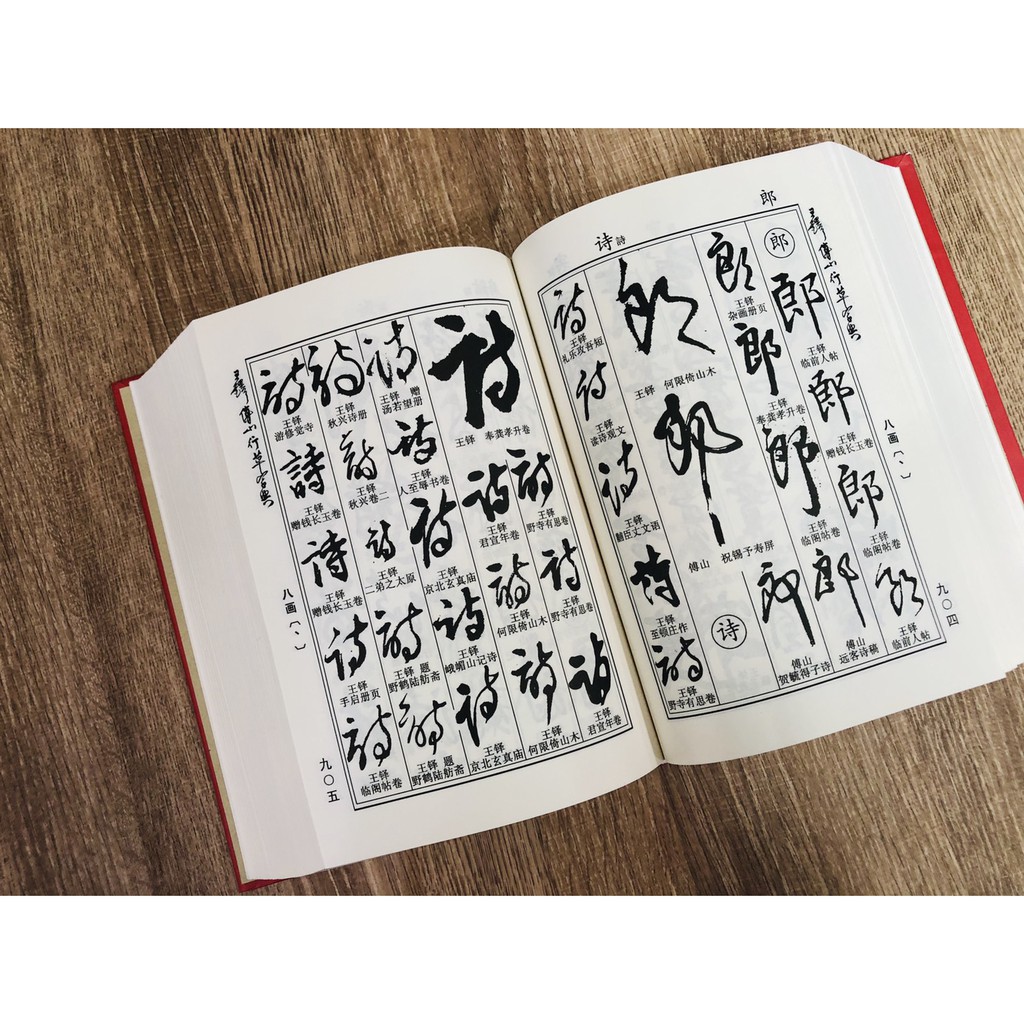 郎
诗 詩
王鐸傅山行草字典
八画〔丶〕
九〇四
郎
郎
王铎
临前人帖
郎
王铎
赠钱长玉卷
郎
王铎
临阁帖卷
郎
王铎
临前人帖
郎
王铎
杂画册页
郎
王铎
奉龚孝升卷
郎
郎
傅山
远客诗稿
郎
王铎 何限倚山木
郎
傅山 祝锡予寿屏
郎
傅山
贺毓得子诗
诗
詩
王铎
礼乐攻吾短
詩
王铎
读诗观文
詩
王铎
文丈语
詩
王铎
至顿庄作
詩
王铎
野寺有思卷
詩
王铎 奉龚孝升卷
詩
王铎
野寺有思卷
詩
王铎
野寺有思卷
詩
王铎
君宣年卷
詩
王铎
君宣年卷
詩
王铎
何限倚山木
詩
王铎
何限倚山木
詩
王铎 赠
汤若望册
詩
王铎
人至辱书卷
詩
王铎
京北玄真庙
詩
王铎
峨嵋山记诗
詩
王铎
京北玄真庙
詩
王铎
秋兴诗册
詩
王铎
秋兴卷二
詩
王铎
二弟之太原
詩
王铎 题
野鹤陆舫斋
詩
王铎 题
野鹤陆舫斋
詩
王铎
游修觉寺
詩
王铎
赠钱长玉卷
詩
王铎
赠钱长玉卷
詩
王铎
手启册页
詩
王铎
临阁帖卷
王鐸傅山行草字典
八画〔丶〕
九〇五